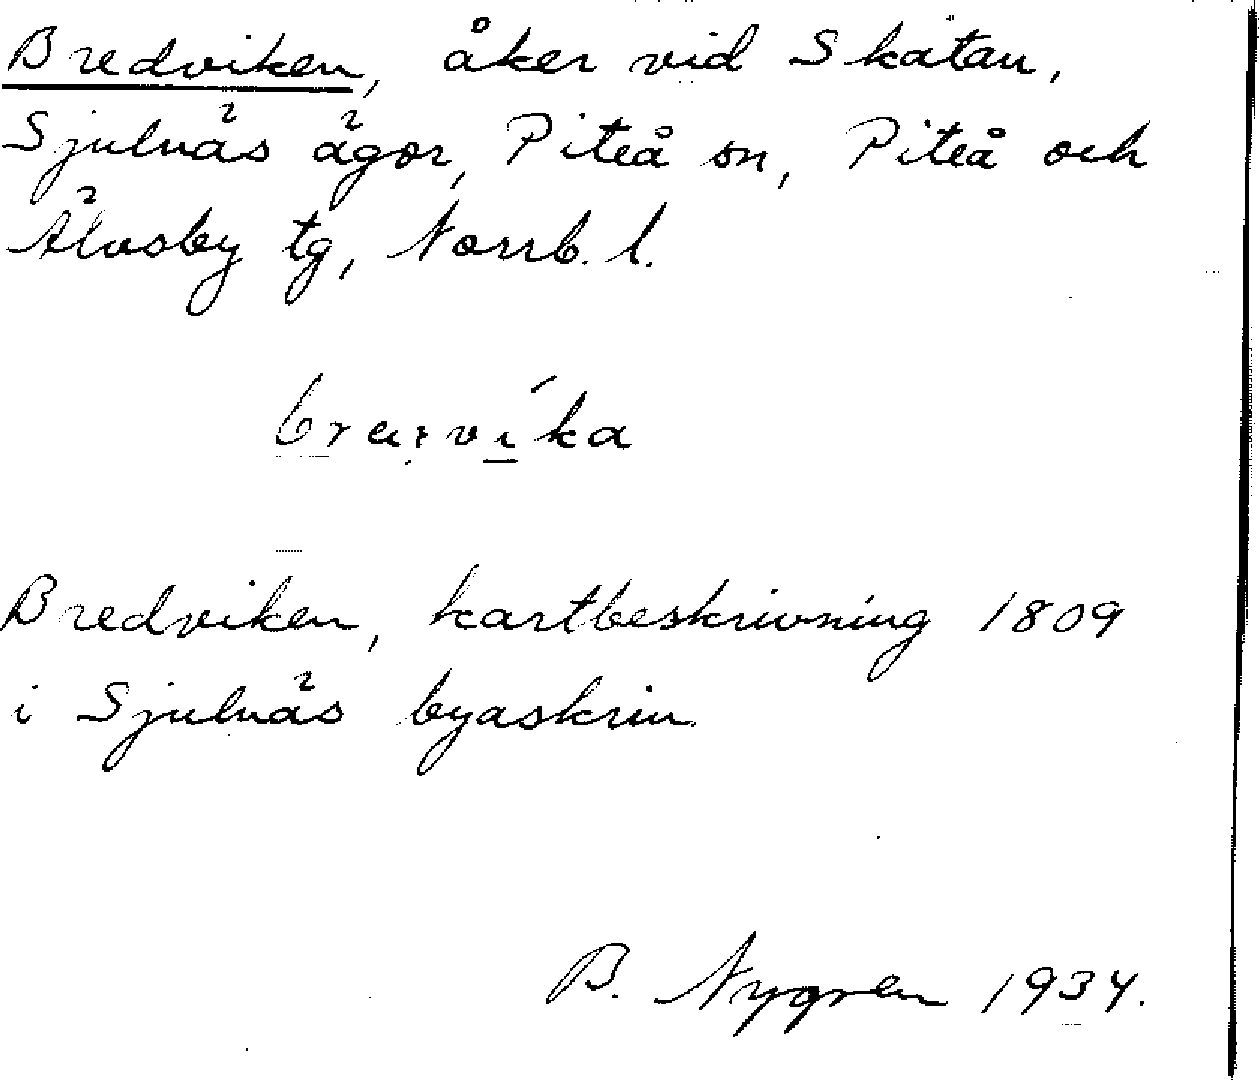 Bredviken, åker vid Skatan,
Sjulnäs ägor, Piteå sn, Piteå och
Älvsby tg, Norrb. l.
Bredviken, kartbeskrivning 1809
i Sjulnäs byaskrin.
B. Nygren 1934.